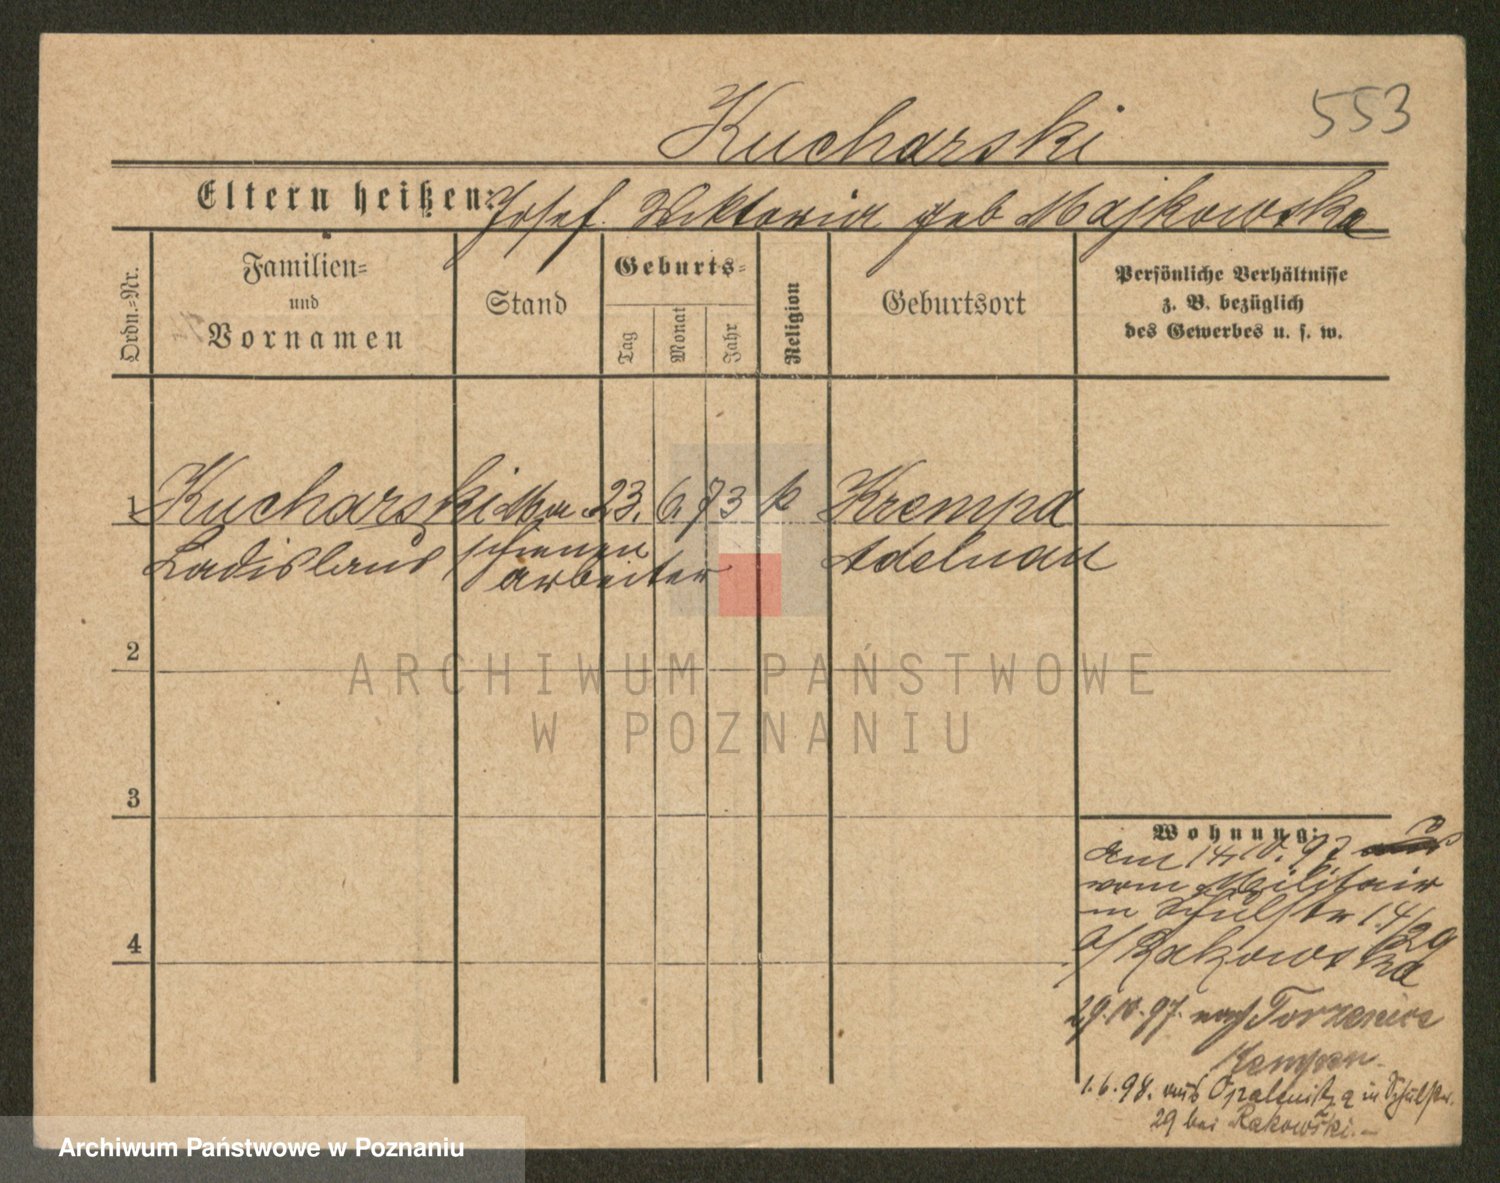 553
Kucharski
Eltern heißen: Josef. Wiktoria geb Majkowska
Ordn.-Nr.
Familien-
und
Vornamen
Stand
Geburts-
Tag
Monat
Jahr
Religion
Geburtsort
Persönliche Verhältnisse
z. B. bezüglich
des Gewerbes u. s. w.
1 Kucharski Ma 23. 6. 73 k Krempa
Ladislaus schienen Adelnau
arbeiter
2
3
4
Wohnung:
am 14.10.97
vom Militair
in Schulstr 14/29
b/ Rakowska
29.10.97. nach Torzeniec
Kempen
1.6.98. aus Opalenitza in Schulstr.
29 bei Rakowski.
ARCHIWUM PAŃSTWOWE
W POZNANIU
Archiwum Państwowe w Poznaniu